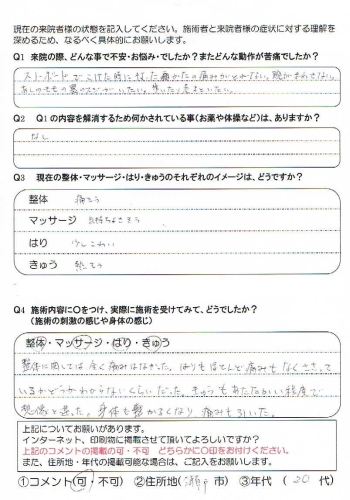 現在の来院者様の状態を記入してください。施術者と来院者様の症状に対する理解を
深めるため、なるべく具体的にお願いします。
Q1 来院の際、どんな事で不安・お悩み・でしたか？またどんな動作が苦痛でしたか？
スノーボードでこけた時になった肩かたの痛みがとれない。腕がまわせない。
あしのももの裏のスジがいたい。歩いたり走るといたい。
Q2 Q1の内容を解消するため何かされている事（お薬や体操など）は、ありますか？
なし
Q3 現在の整体・マッサージ・はり・きゅうのそれぞれのイメージは、どうですか？
整体 痛そう
マッサージ 気持ちよさそう
はり 少しこわい
きゅう 熱そう
Q4 施術内容に〇をつけ、実際に施術を受けてみて、どうでしたか？
（施術の刺激の感じや身体の感じ）
整体・マッサージ・はり・きゅう
整体に関しては全く痛みはなかった。はりもほとんど痛みもなくささって
いるかどうかわからないくらいだった。きゅうもあたたかい程度で
想像と違った。身体も軽くなり 痛みも引いた。
上記についてお願いがあります。
インターネット、印刷物に掲載させて頂いてよろしいですか？
上記のコメントの掲載の可・不可 どちらかに〇印をお付けください。
また、住所地・年代の掲載可能な場合は、ご記入をお願いします。
①コメント（可・不可）②住所地（瀬戸市）③年代（20代）